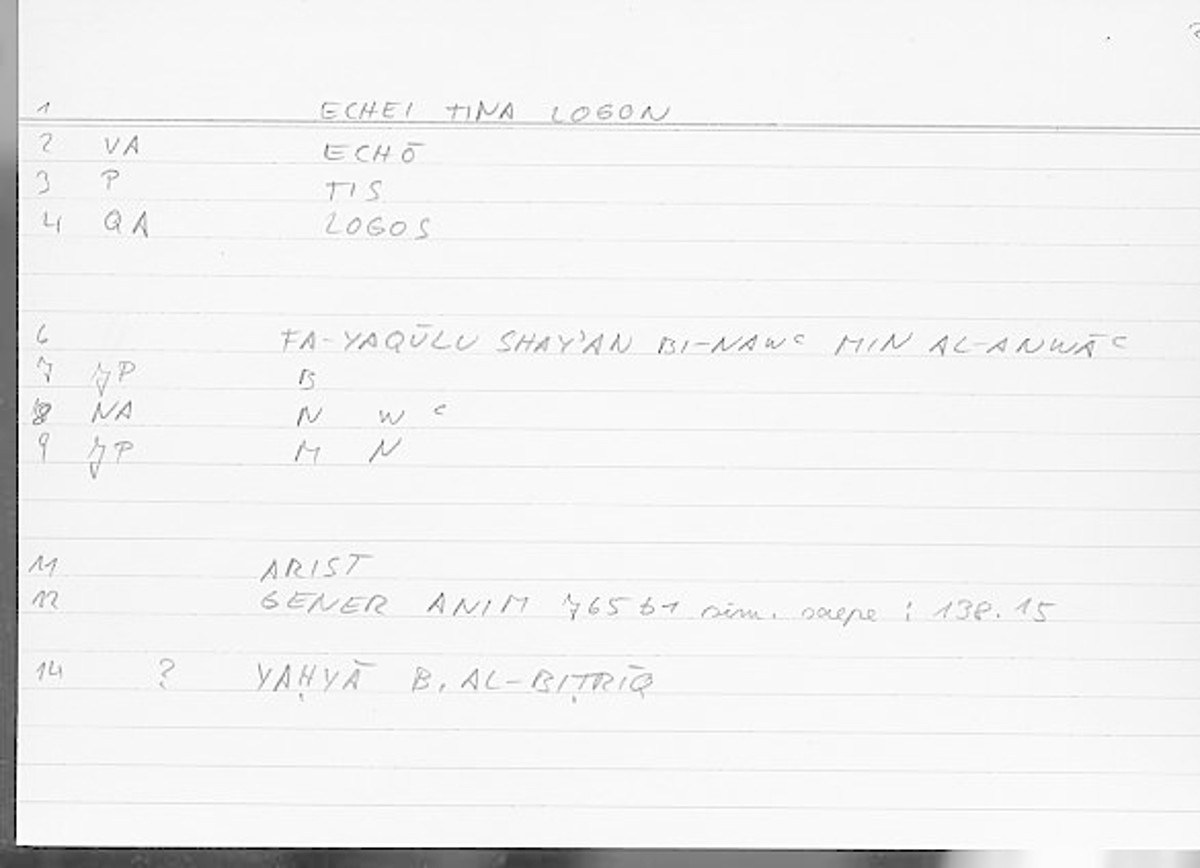 1 ECHEI TINA LOGON
2 VA ECHŌ
3 P TIS
4 QA LOGOS
6 FA-YAQŪLU SHAY'AN BI-NAWʿ MIN AL-ANWĀʿ
7 JP B
8 NA N W ʿ
9 JP M N
11 ARIST
12 GENER ANIM 765 b1 sim. saepe : 138.15
14 ? YAḤYĀ B. AL-BIṬRĪQ